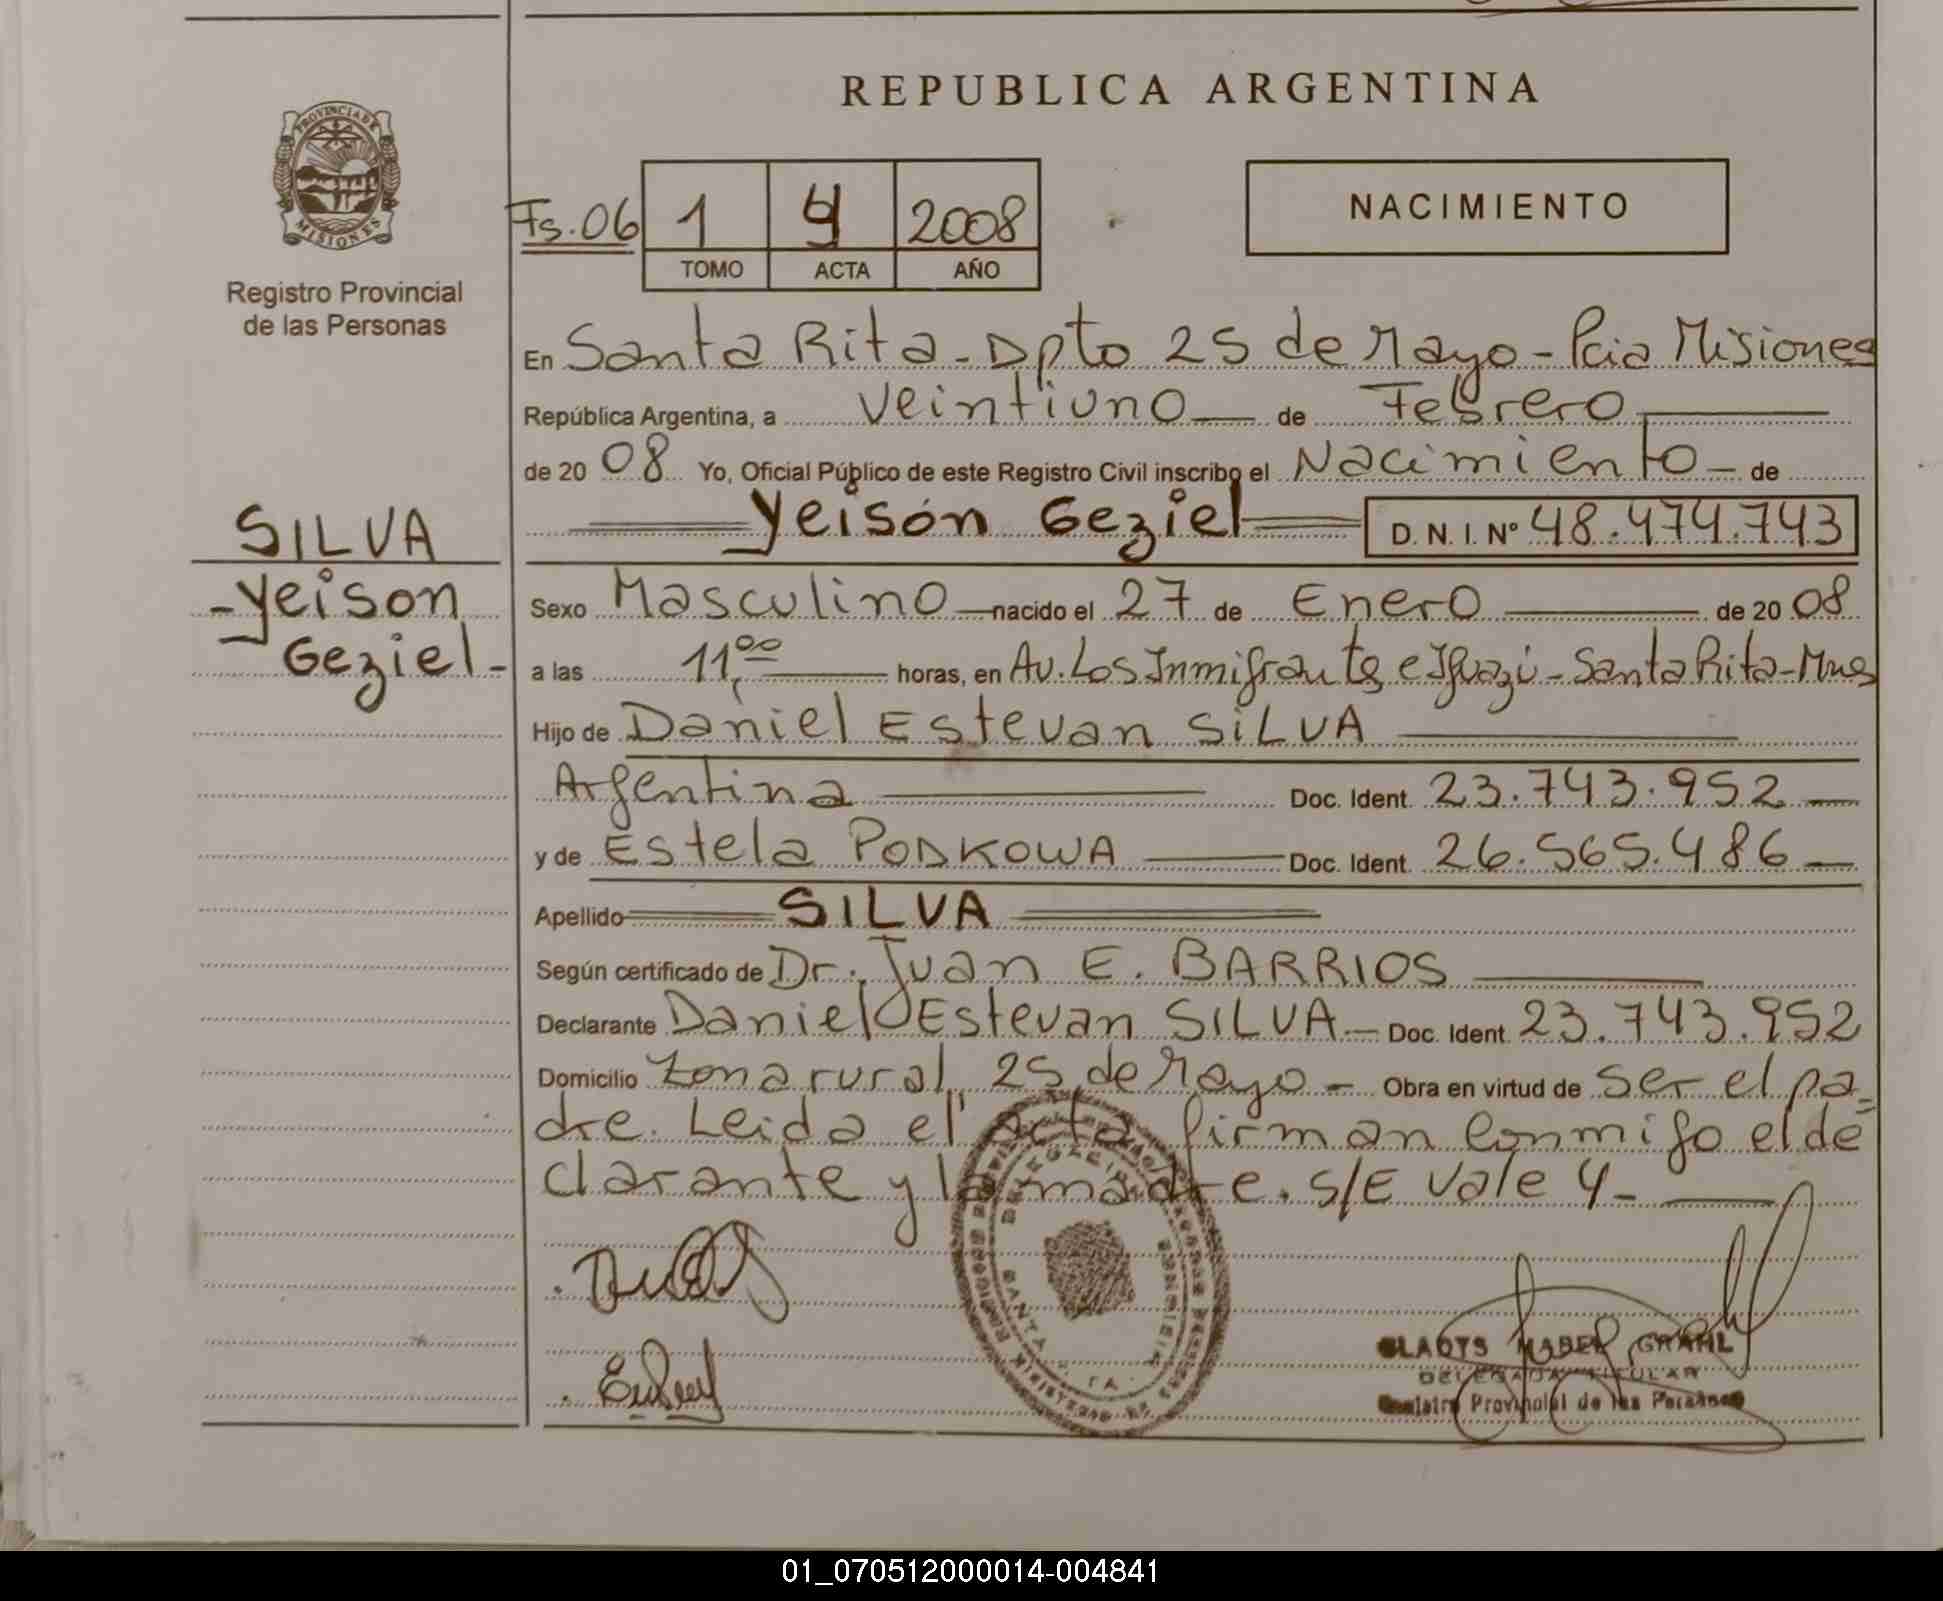 REPUBLICA ARGENTINA
PROVINCIA DE
MISIONES
Registro Provincial
de las Personas
NACIMIENTO
Fs. 06 1 4 2008
TOMO ACTA AÑO
En Santa Rita - Dpto 25 de Mayo - Pcia Misiones
República Argentina, a Veintiuno de Febrero
de 20 08 Yo, Oficial Público de este Registro Civil inscribo el Nacimiento - de
Yeisón Geziel D. N. I. Nº 48.474.743
SILVA
- Yeison
Geziel -
Sexo Masculino nacido el 27 de Enero de 20 08
a las 11,00 horas, en Av. Los Inmigrantes e Iguazú - Santa Rita - Mnes
Hijo de Daniel Estevan SILVA
Argentina Doc. Ident. 23.743.952
y de Estela PODKOWA Doc. Ident. 26.565.486
Apellido SILVA
Según certificado de Dr. Juan E. BARRIOS
Declarante Daniel Estevan SILVA - Doc. Ident. 23.743.952
Domicilio Zona rural, 25 de Mayo - Obra en virtud de ser el pa-
dre. Leida el acta firman conmigo el de
clarante y la madre. S/E vale 4 -
GLADYS MABEL GRAHL
DELEGADA TITULAR
Registro Provincial de las Personas
01_070512000014-004841